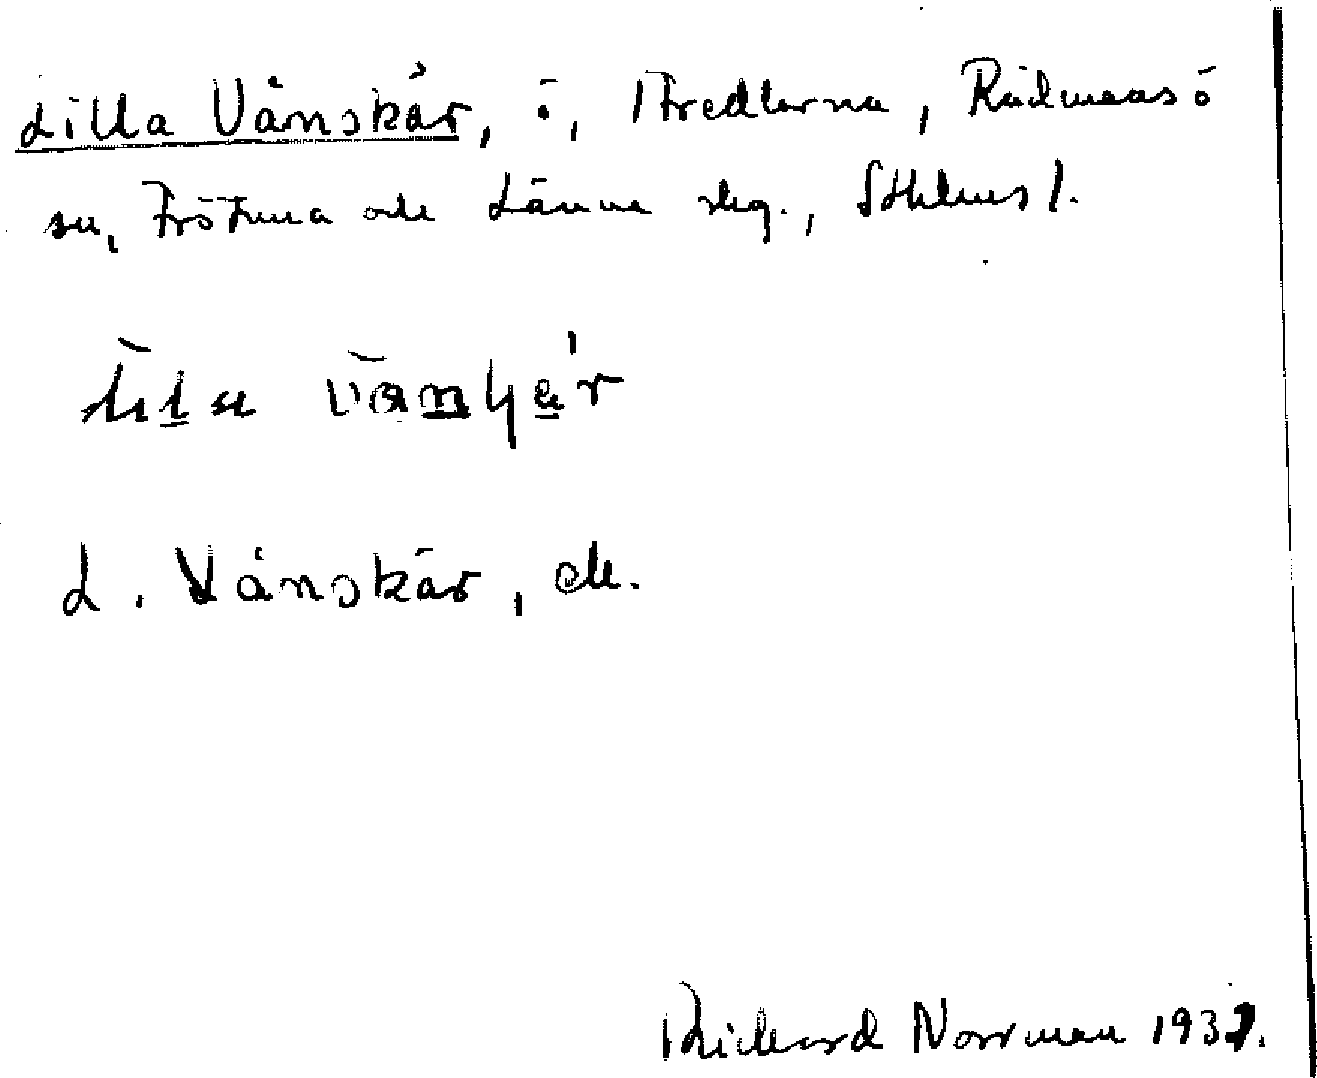 Lilla Vånskär, ö, Fredlarna, Rådmansö
sn, Frötuna och Länna skg., Sthlms l.
L. Vånskär, ek.
Rickard Norrman 193